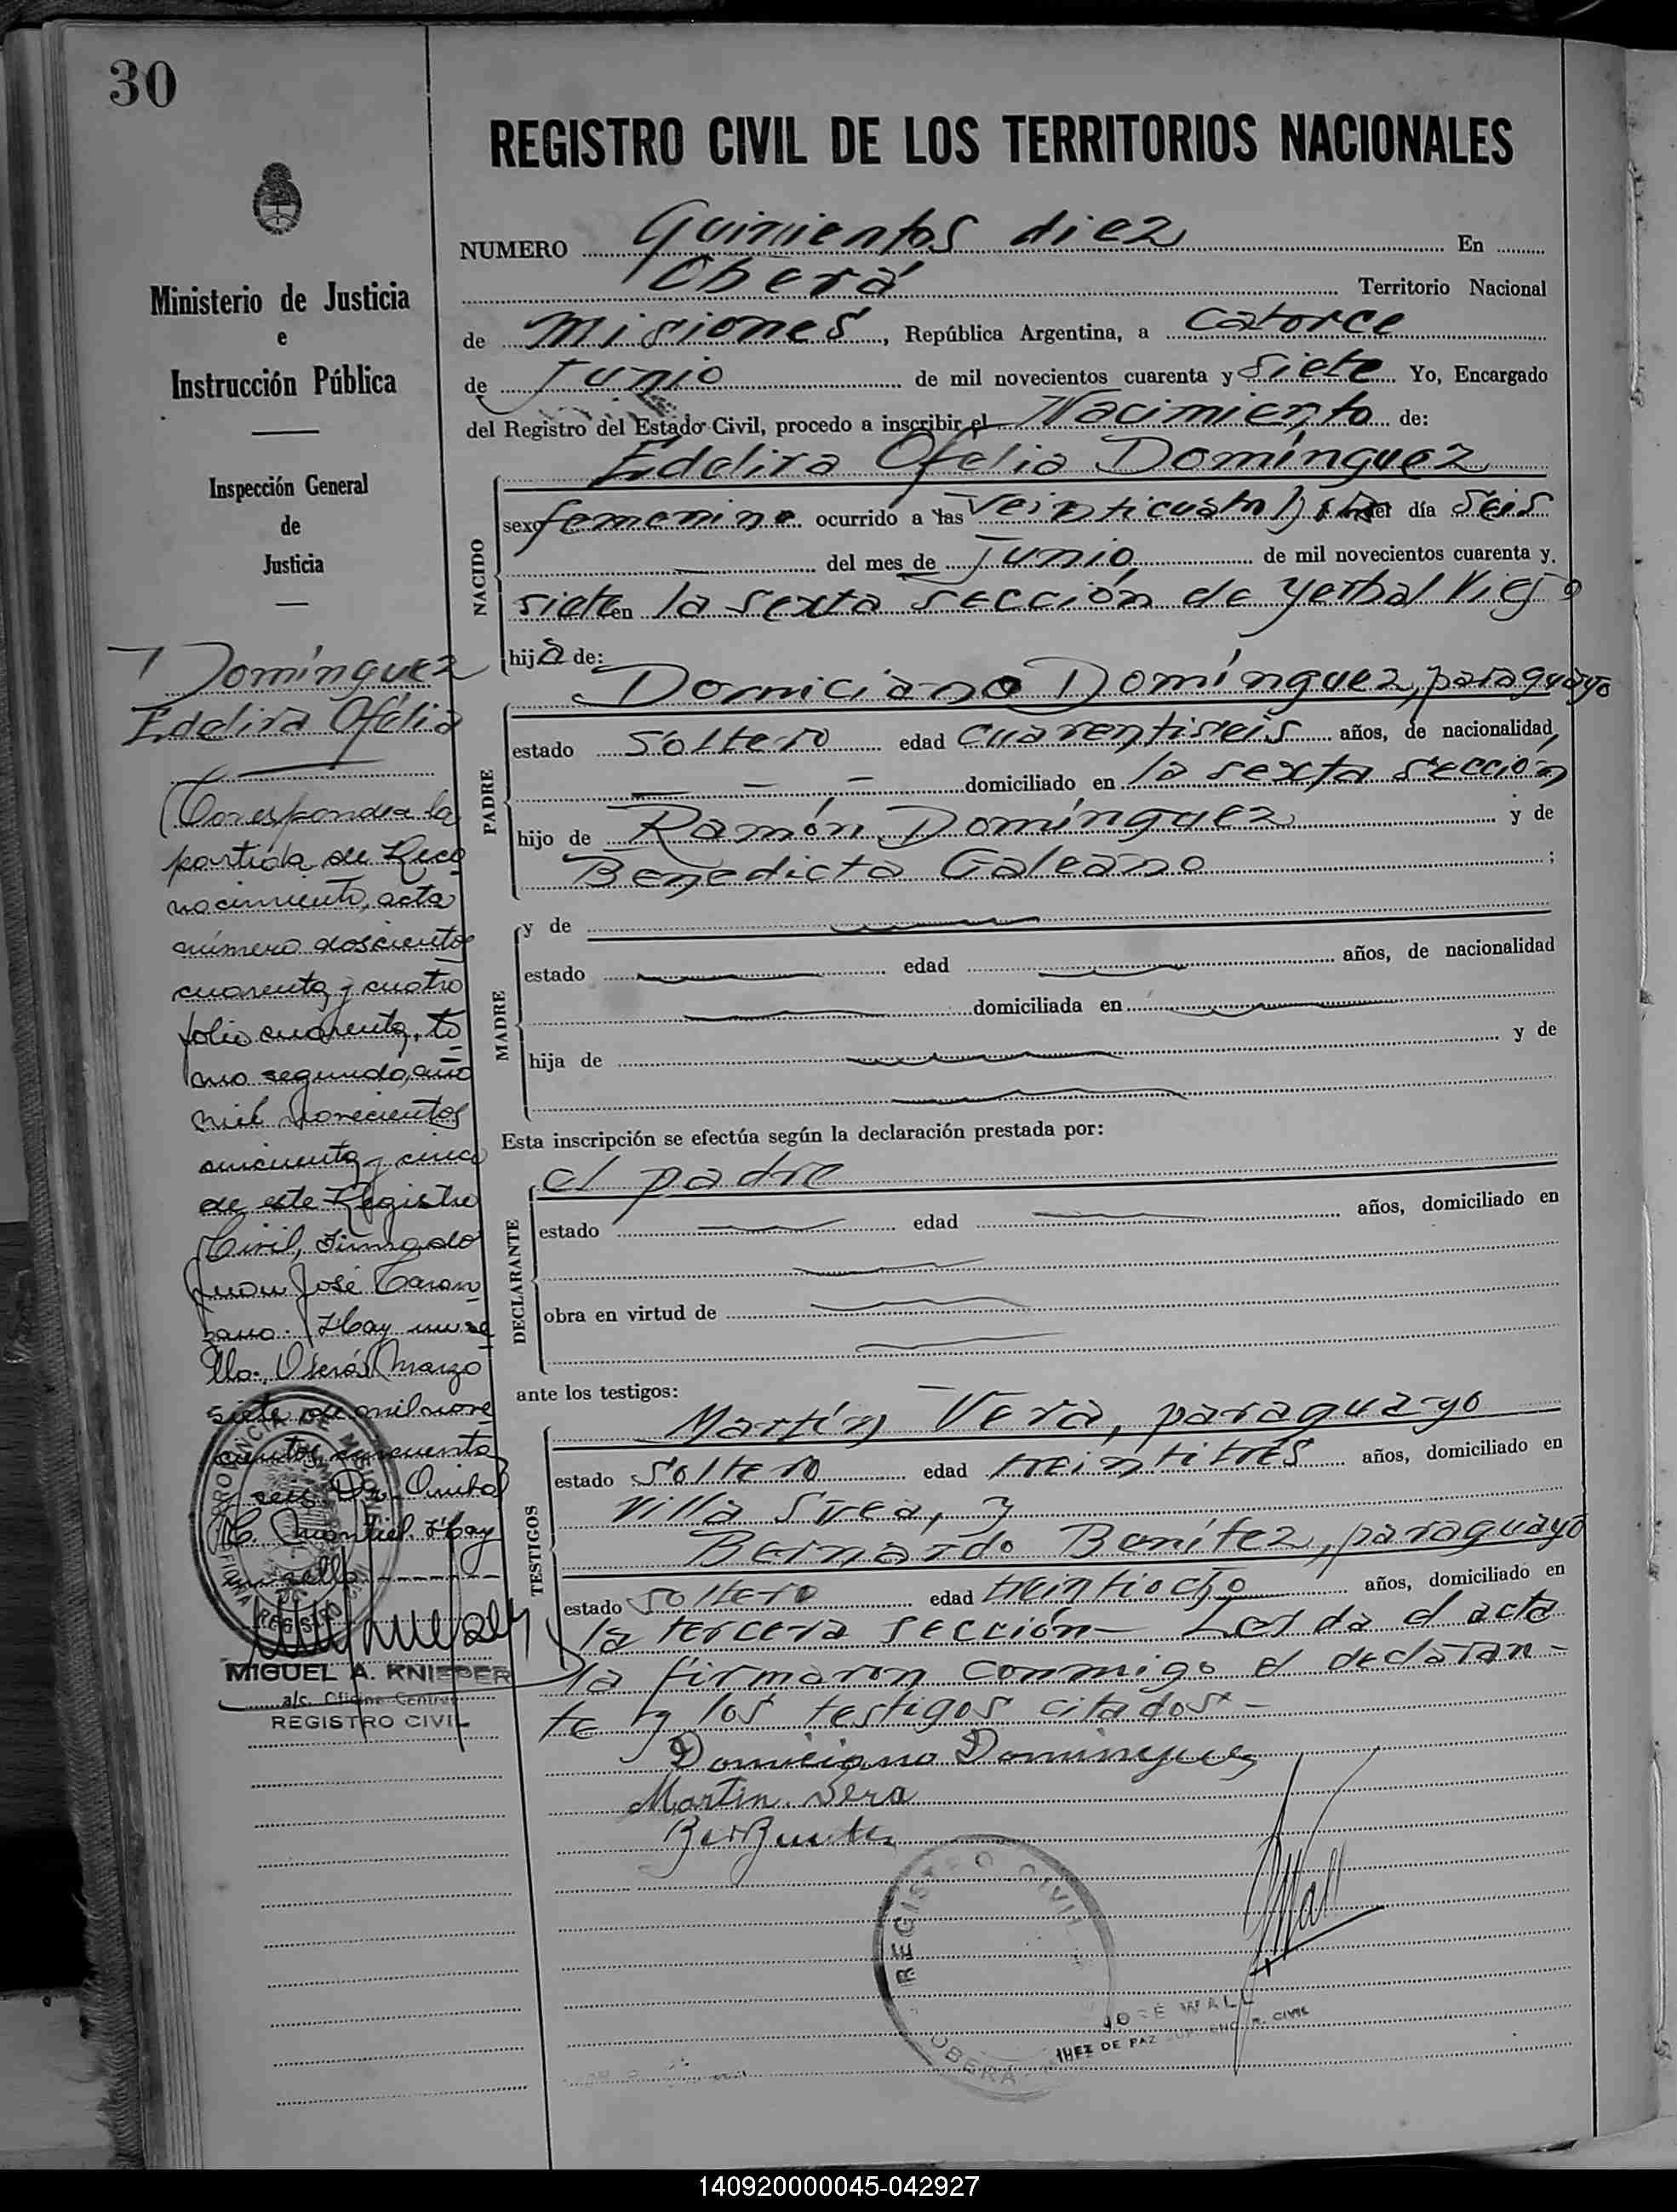 30
REGISTRO CIVIL DE LOS TERRITORIOS NACIONALES
Ministerio de Justicia
e
Instrucción Pública
Inspección General
de
Justicia
Domínguez
Edelira Ofelia
Corresponde la
partida de Reco
nocimiento, acta
número doscientos
cuarenta y cuatro
folio cuarenta, to
mo segundo, año
mil novecientos
cincuenta y cinco
de este Registro
Civil, Firmado
Juan José Caran
zano. Hay un se
llo. Oberá, Marzo
siete de mil nove
cientos cincuenta
y seis. Da. Anibal
C. Montiel. Hay
un sello
PROVINCIA DE MISIONES
REGISTRO
MIGUEL A. KNIEPER
a/c. Oficina Central
REGISTRO CIVIL
NUMERO Quinientos diez En
Oberá Territorio Nacional
de Misiones, República Argentina, a catorce
de Junio de mil novecientos cuarenta y siete Yo, Encargado
del Registro del Estado Civil, procedo a inscribir el Nacimiento de:
Edelira Ofelia Domínguez
NACIDO
sexo femenino ocurrido a las veinticuatro del día seis
del mes de Junio de mil novecientos cuarenta y
siete en la sexta sección de Yerbal Viejo
hija de:
PADRE
Domiciano Domínguez, paraguayo
estado soltero edad cuarentiseis años, de nacionalidad
domiciliado en la sexta sección
hijo de Ramón Domínguez y de
Benedicta Galeano ;
MADRE
y de
estado edad años, de nacionalidad
domiciliada en
hija de y de
Esta inscripción se efectúa según la declaración prestada por:
DECLARANTE
el padre
estado edad años, domiciliado en
obra en virtud de
ante los testigos:
TESTIGOS
Martín Vera, paraguayo
estado soltero edad treintitrés años, domiciliado en
Villa Svea, y
Bernardo Benítez, paraguayo
estado soltero edad treintiocho años, domiciliado en
la tercera sección— Leida el acta
la firmaron conmigo el declaran-
te y los testigos citados—
Domiciano Dominguez
Martin Vera
REGISTRO CIVIL
OBERÁ
JOSE WALL
JUEZ DE PAZ ENC. R. CIVIL
140920000045-042927